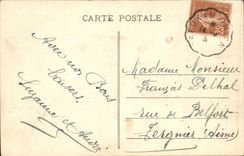 CARTE POSTALE
Avec nos Bons
baisers.
Suzanne et André
Madame Monsieur
François Delhal
rue de Belfort
Tergnier Aisne